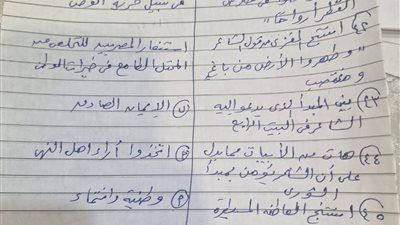 القطر أرواحنا"
في سبيل حرية الوطن
٤٢ استنتج المغزى من قول الشاعر
"وطهروا الأرض من باغ
ومغتصب
استنفار المصريين للتخلص من
المحتل الطامع في خيرات الوطن
٤٣ بين المبدأ الذي يدعو إليه
الشاعر في البيت الرابع
الإيمان الصادق
٤٤ هات من الأبيات مما يدل
على أن الشاعر يؤمن بمبدأ
الشورى
اتخذوا آراء أهل النهى
٤٥ استنتج العاطفة المسيطرة
وطنية وانتماء